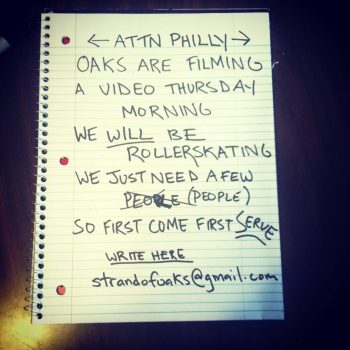 ← ATTN PHILLY →
OAKS ARE FILMING
A VIDEO THURSDAY
MORNING
WE WILL BE
ROLLERSKATING
WE JUST NEED A FEW
PEOPLE (PEOPLE)
SO FIRST COME FIRST SERVE
WRITE HERE
strandofoaks@gmail.com